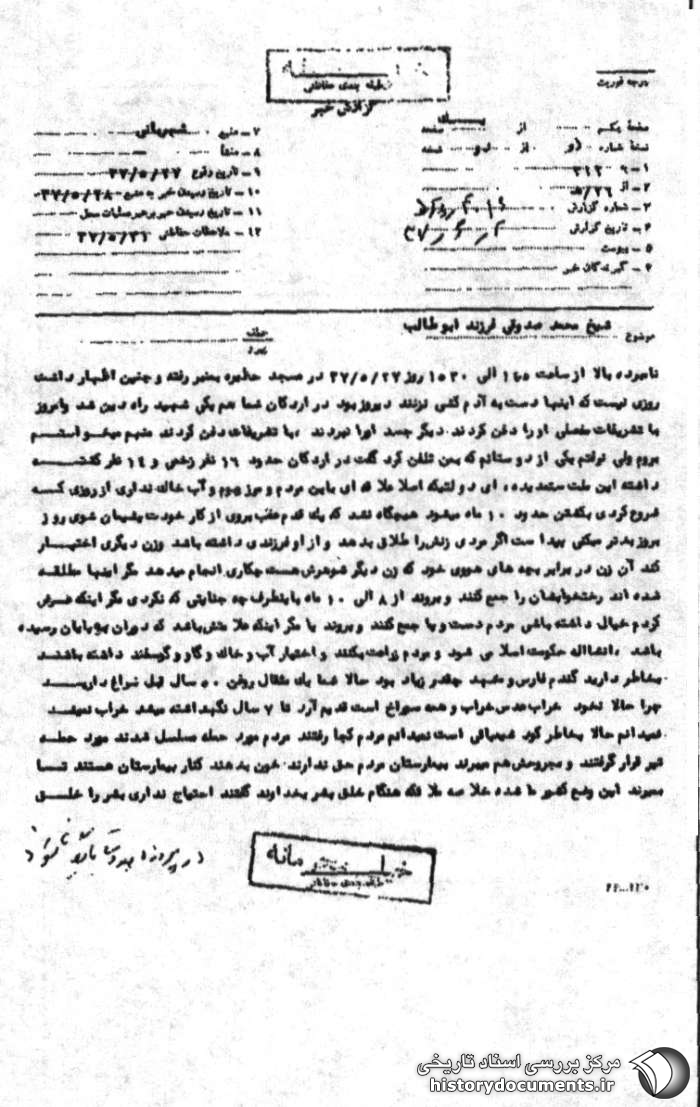 خیلی محرمانه
طبقه بندی حفاظتی
گزارش خبر
درجه فوریت
صفحه یکم از صفحه
نسخه شماره دو از دو نسخه
۱ـ به ۳۱۲
۲ـ از ۲۶/ه
۳ـ شماره گزارش
۴ـ تاریخ گزارش
۵ـ پیوست
۶ـ گیرندگان خبر
۷ـ منبع شهربانی
۸ـ منشأ
۹ـ تاریخ وقوع ۳۷/۵/۲۷
۱۰ـ تاریخ رسیدن خبر به منبع ۳۷/۵/۲۸
۱۱ـ تاریخ رسیدن خبر برهبر عملیات محل
۱۲ـ ملاحظات حفاظتی ۳۷/۵/۳۱
موضوع شیخ محمد صدوقی فرزند ابوطالب
نامبرده بالا از ساعت الی ۱۵۳۰ روز ۳۷/۵/۲۷ در مسجد حظیره بمنبر رفته و چنین اظهار داشت
روزی نیست که اینها دست به آدم کشی نزنند دیروز بود در اردکان شما هم یکی شهید راه دین شد وامروز
با تشریفات مفصلی او را دفن کردند دیگر جسد اورا نبردند با تشریفات دفن کردند منهم میخواستم
بروم ولی نتوانم یکی از دوستانم که بمن تلفن کرد گفت در اردکان حدود ۱۶ نفر زخمی و ۱۴ نفر کشته
داشته این ملت ستمدیده ای دولتیکه اصلا علاقه ای باین مردم و مرز وبوم و آب خاک نداری از روزی که
شروع کردی بکشتن حدود ۱۰ ماه میشود هیچگاه نشد که یک قدم عقب بروی از کار خودت پشیمان شوی روز
بروز بدتر میکنی پیداست اگر مردی زنش را طلاق بدهد و از او فرزندی داشته باشد وزن دیگری اختیار
کند آن زن در برابر بچه های هووی خود که زن دیگر شوهرش هست چکاری انجام میدهد مگر اینها مطلقه
شده اند رختخوابشان را جمع کنند و بروند از ۸ الی ۱۰ ماه باینطرف چه جنایتی که نکردی مگر اینکه فرض
کردم خیال داشته باشی مردم دست و پا جمع کنند و بروند یا مگر اینکه علامتش باشد که دوران بپایان رسیده
باشد انشااله حکومت اسلامی شود و مردم زراعت بکنند و اختیار آب و خاک و گاو و گوسفند داشته باشند
بخاطر دارید گندم فارس و مشهد چقدر زیاد بود حالا شما یک مثقال روغن ۵۰ سال قبل سراغ دارید
چرا حالا نخود خراب عدس خراب و همه سوراخ است قدیم آرد تا ۷ سال نگهداشته میشد خراب نمیشد
نمیدانم حالا بخاطر کود شیمیائی است نمیدانم مردم کجا رفتند مردم مورد حمله مسلسل شدند مورد حمله
تیر قرار گرفتند و مجروحش هم میبرند بیمارستان مردم حق ندارند خون بدهند کنار بیمارستان هستند تا
بمیرند این وضع کشور ما شده خلاصه ملائکه هنگام خلق بشر بخداوند گفتند احتیاج نداری بشر را خلق
خیلی محرمانه
طبقه بندی حفاظتی
مرکز بررسی اسناد تاریخی
historydocuments.ir